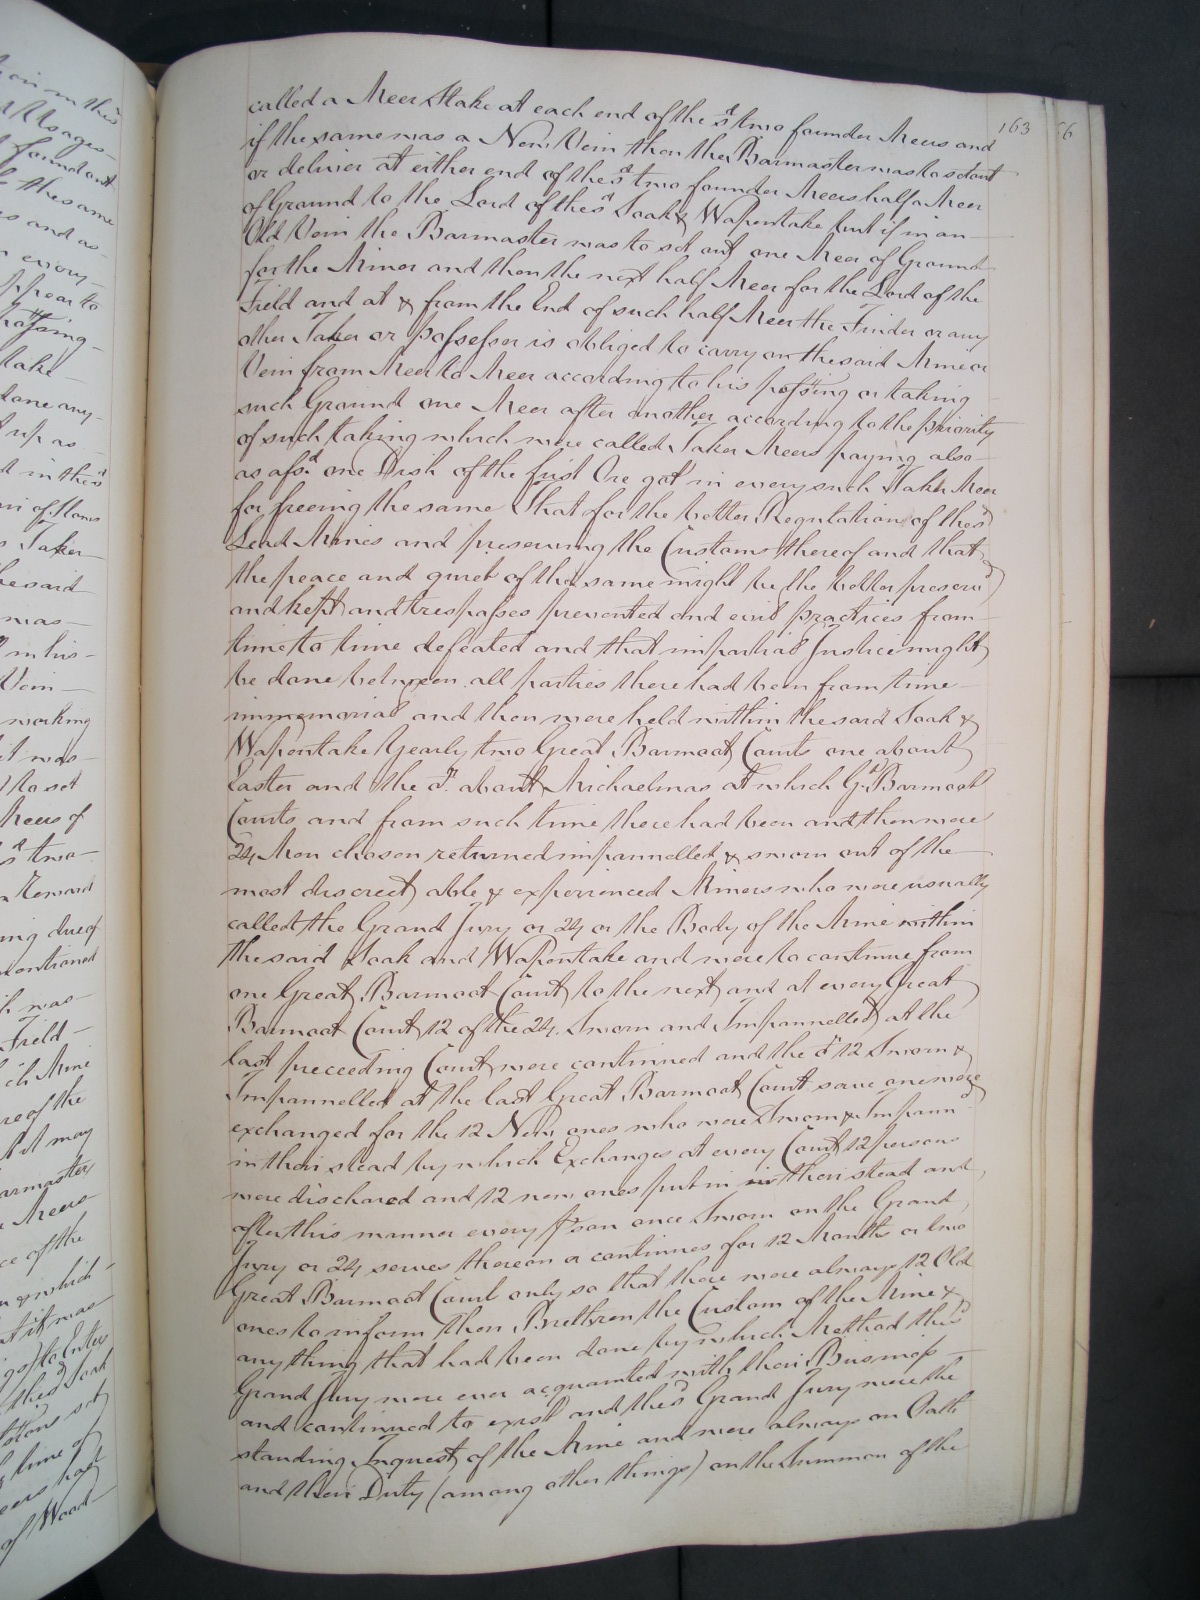 called a Meer Stake at each end of the sd two founder Meers and
163
if the same was a New Vein then the Barmaster was to set out
or deliver at either end of the sd two founder Meers half a Meer
of Ground to the Lord of the sd Soak & Wapentake but if in an
Old Vein the Barmaster was to set out one Meer of Ground
for the Miner and then the next half Meer for the Lord of the
Field and at & from the End of such half Meer the Finder or any
other Taker or possessor is obliged to carry on the said Mine or
Vein from Meer to Meer according to his possing or taking
such Ground one Meer after another according to the priority
of such taking which were called Taker Meers paying also
as afsd one Dish of the first Ore got in every such Taker Meer
for freeing the same That for the better Regulation of the sd
Lead Mines and preserving the Customs thereof and that
the peace and quiet of the same might be the better preservd
and kept and trespasses prevented and evil practices from
time to time defeated and that impartial Justice might
be done between all parties there had been from time
immemorial and then were held within the said Soak &
Wapentake Yearly two Great Barmoot Courts one about
Easter and the or about Michaelmas at which Gt Barmoot
Courts and from such time there had been and then were
24 Men chosen returned impannelled & sworn out of the
most discreet able & experienced Miners who were usually
called the Grand Jury or 24 or the Body of the Mine within
the said Soak and Wapentake and were to continue from
one Great Barmoot Court to the next and at every Great
Barmoot Court 12 of the 24 Sworn and Impannelled at the
last preceeding Court were continued and the or 12 Sworn &
Impannelled at the last Great Barmoot Court save one were
exchanged for the 12 New ones who were Sworn & Impannd
in their stead by which Exchanges at every Court 12 persons
were dischared and 12 new ones put in in their stead and
after this manner every pson once Sworn on the Grand
Jury or 24 serves thereon or continues for 12 Months or two
Great Barmoot Court only so that there were always 12 Old
ones to inform then Brethren the Custom of the Mine &
any thing that had been done by which Method the sd
Grand Jury were ever acquainted with their Business
and continued to exist and the sd Grand Jury were the
standing Inquest of the Mine and were always on Oath
and their Duty (among other things) on the Summon of the